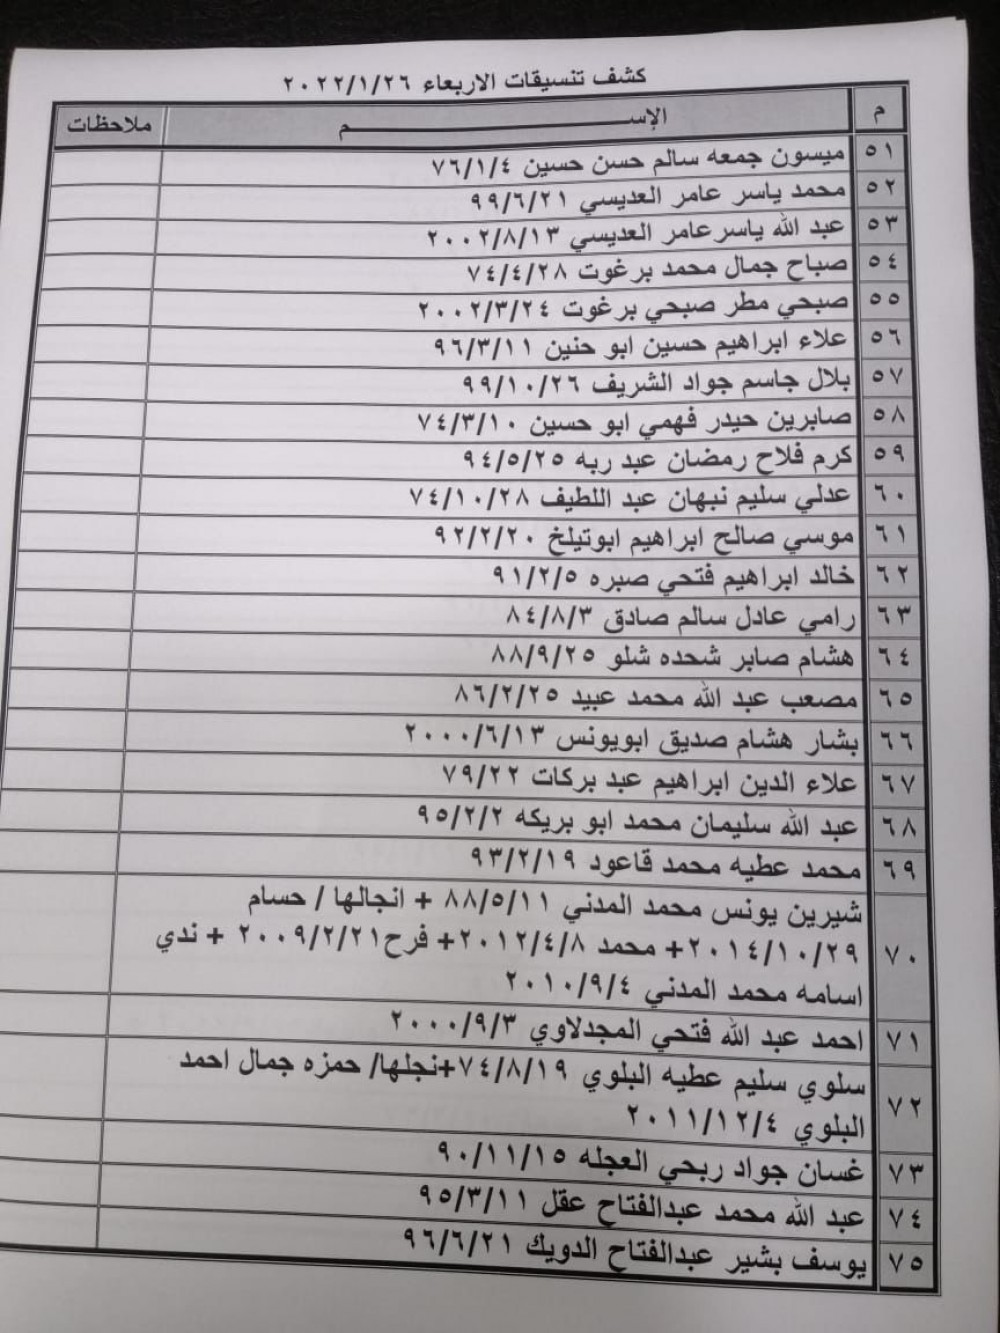 كشف تنسيقات الاربعاء ٢٠٢٢/١/٢٦
م الإســـــــــم ملاحظات
٥١ ميسون جمعه سالم حسن حسين ٧٦/١/٤
٥٢ محمد ياسر عامر العديسي ٩٩/٦/٢١
٥٣ عبد الله ياسر عامر العديسي ٢٠٠٢/٨/١٣
٥٤ صباح جمال محمد برغوت ٧٤/٤/٢٨
٥٥ صبحي مطر صبحي برغوت ٢٠٠٢/٣/٢٤
٥٦ علاء ابراهيم حسين ابو حنين ٩٦/٣/١١
٥٧ بلال جاسم جواد الشريف ٩٩/١٠/٢٦
٥٨ صابرين حيدر فهمي ابو حسين ٧٤/٣/١٠
٥٩ كرم فلاح رمضان عبد ربه ٩٤/٥/٢٥
٦٠ عدلي سليم نبهان عبد اللطيف ٧٤/١٠/٢٨
٦١ موسي صالح ابراهيم ابوتيلخ ٩٢/٢/٢٠
٦٢ خالد ابراهيم فتحي صبره ٩١/٢/٥
٦٣ رامي عادل سالم صادق ٨٤/٨/٣
٦٤ هشام صابر شحده شلو ٨٨/٩/٢٥
٦٥ مصعب عبد الله محمد عبيد ٨٦/٢/٢٥
٦٦ بشار هشام صديق ابويونس ٢٠٠٠/٦/١٣
٦٧ علاء الدين ابراهيم عبد بركات ٧٩/٢٢
٦٨ عبد الله سليمان محمد ابو بريكه ٩٥/٢/٢
٦٩ محمد عطيه محمد قاعود ٩٣/٢/١٩
٧٠ شيرين يونس محمد المدني ٨٨/٥/١١ + انجالها / حسام
٢٠١٤/١٠/٢٩+ محمد ٢٠١٢/٤/٨+ فرح٢٠٠٩/٢/٢١ + ندي
اسامه محمد المدني ٢٠١٠/٩/٤
٧١ احمد عبد الله فتحي المجدلاوي ٢٠٠٠/٩/٣
٧٢ سلوي سليم عطيه البلوي ٧٤/٨/١٩+نجلها/ حمزه جمال احمد
البلوي ٢٠١١/١٢/٤
٧٣ غسان جواد ربحي العجله ٩٠/١١/١٥
٧٤ عبد الله محمد عبدالفتاح عقل ٩٥/٣/١١
٧٥ يوسف بشير عبدالفتاح الدويك ٩٦/٦/٢١